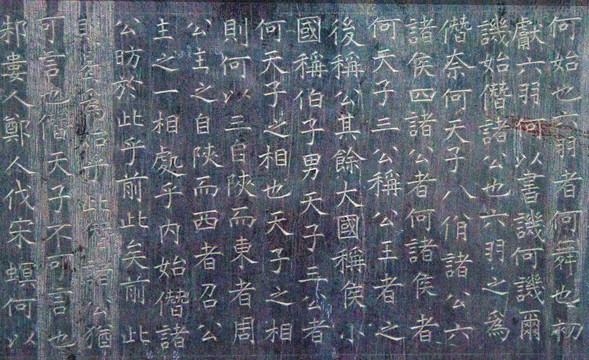 何始也六羽者何舞也初
獻六羽何以書譏何譏爾
譏始僭諸公也六羽之爲
僭奈何天子八佾諸公六
諸侯四諸公者何諸侯者
何天子三公稱公王者之
後稱公其餘大國稱侯小
國稱伯子男天子三公者
何天子之相也天子之相
則何以三自陝而東者周
公主之自陝而西者召公
主之一相處乎内始僭諸
公昉於此乎前此矣前此
則曷爲始乎此僭諸公猶
可言也僭天子不可言也
邾婁人鄭人伐宋螟何以